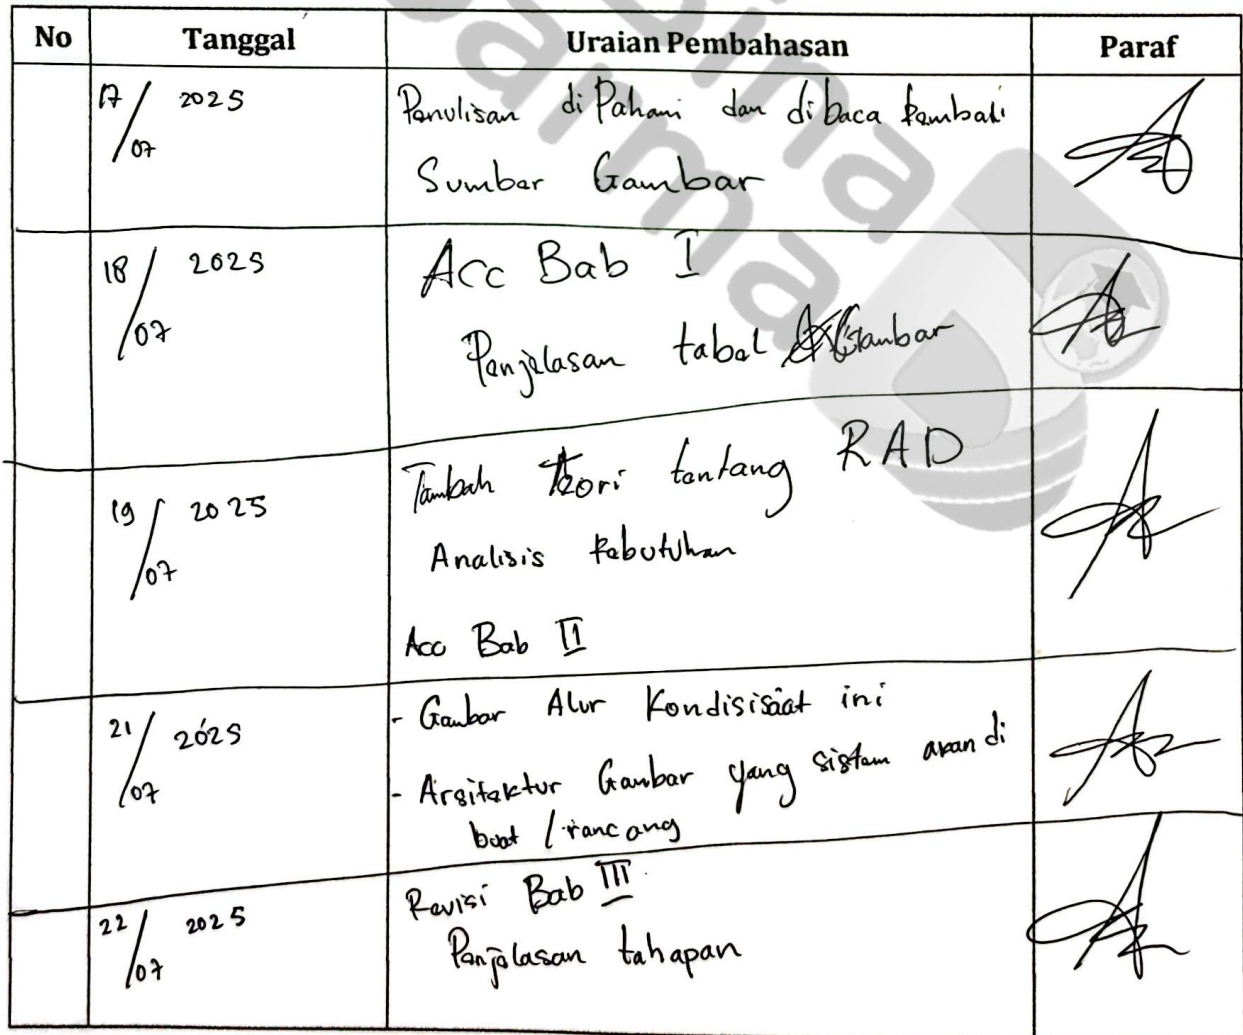 No Tanggal Uraian Pembahasan Paraf
17/07 2025 Penulisan di Pahami dan di baca kembali
Sumber Gambar
18/07 2025 Acc Bab I
Penjelasan tabel Gambar
19/07 2025 Tambah teori tentang RAD
Analisis kebutuhan
Acc Bab II
21/07 2025 - Gambar Alur Kondisisaat ini
- Arsitektur Gambar yang sistem akan di
buat / rancang
22/07 2025 Revisi Bab III
Penjelasan tahapan
Bina
Darma